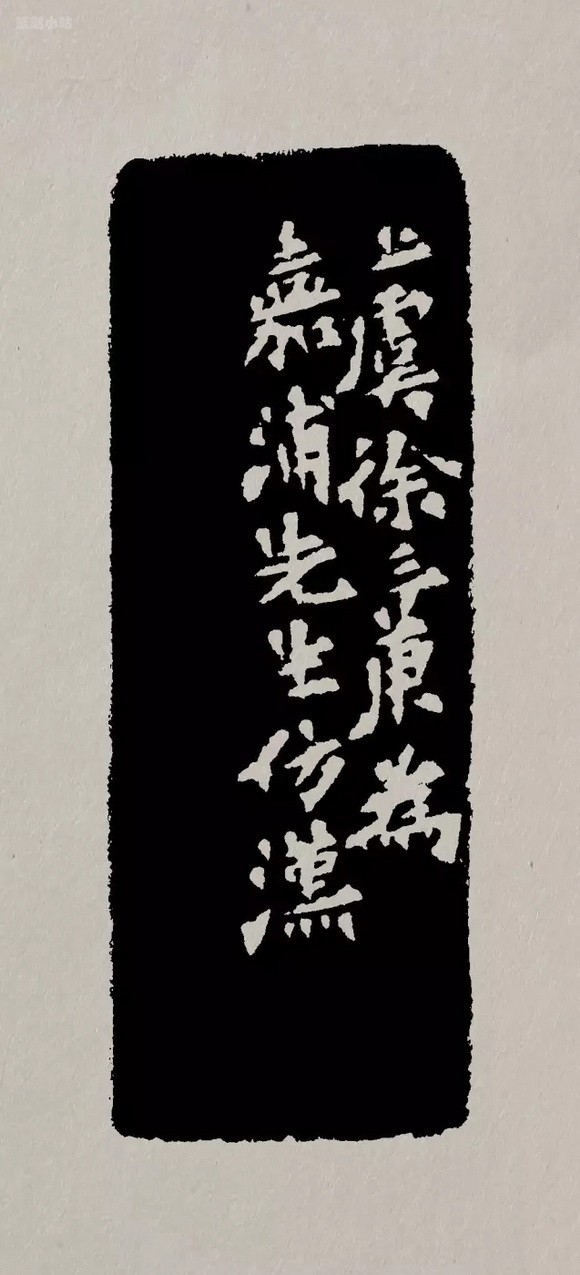 上虞徐三庚為
嘉浦先生仿漢